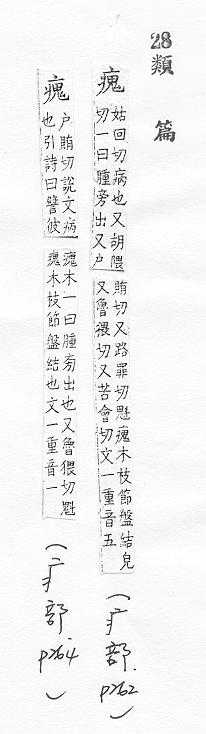 28類 篇
瘣 姑回切病也又胡隈
切一曰腫旁出又户
賄切又路罪切魁瘣木枝節盤結皃
又魯猥切又苦會切文一重音五
(疒部 p262)
瘣 户賄切說文病
也引詩曰譬彼
瘣木一曰腫旁出也又魯猥切魁
瘣木枝節盤結也文一重音一
(疒部 p264)